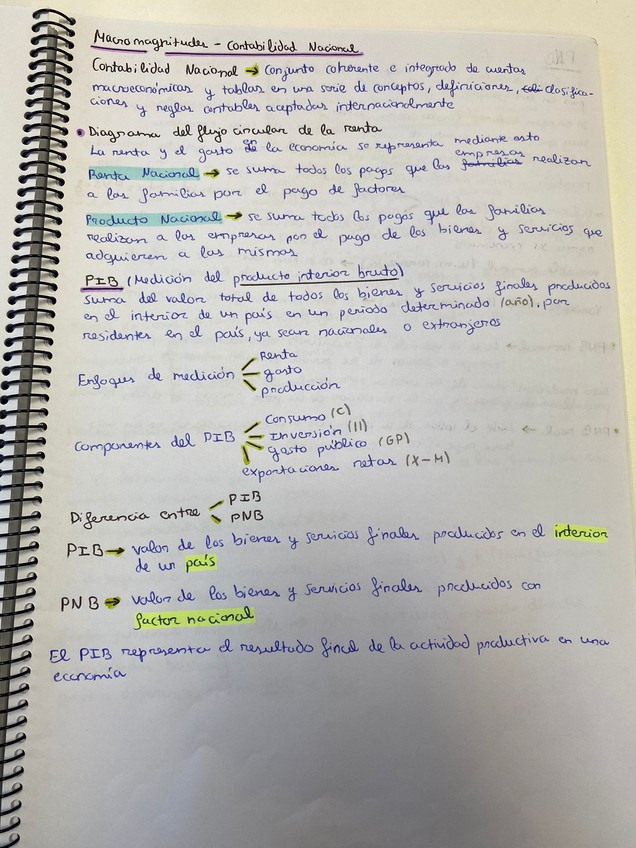 Macromagnitudes - Contabilidad Nacional
Contabilidad Nacional → Conjunto coherente e integrado de cuentas
macroeconómicas y tablas en una serie de conceptos, definiciones, clasifica-
ciones y reglas contables aceptadas internacionalmente
• Diagrama del flujo circular de la renta
La renta y el gasto en la economía se representa mediante esto
Renta Nacional → se suma todos los pagos que las familias empresas realizan
a las familias por el pago de factores
Producto Nacional → se suma todos los pagos que las familias
realizan a las empresas por el pago de los bienes y servicios que
adquieren a las mismas
PIB (Medición del producto interior bruto)
Suma del valor total de todos los bienes y servicios finales producidos
en el interior de un país en un periodo determinado (año), por
residentes en el país, ya sean nacionales o extranjeros
Enfoques de medición
Renta
gasto
producción
Componentes del PIB
Consumo (C)
Inversión (II)
gasto público (GP)
exportaciones netas (X-M)
Diferencia entre
PIB
PNB
PIB → valor de los bienes y servicios finales producidos en el interior
de un país
PNB → valor de los bienes y servicios finales producidos con
factor nacional
El PIB representa el resultado final de la actividad productiva en una
economía